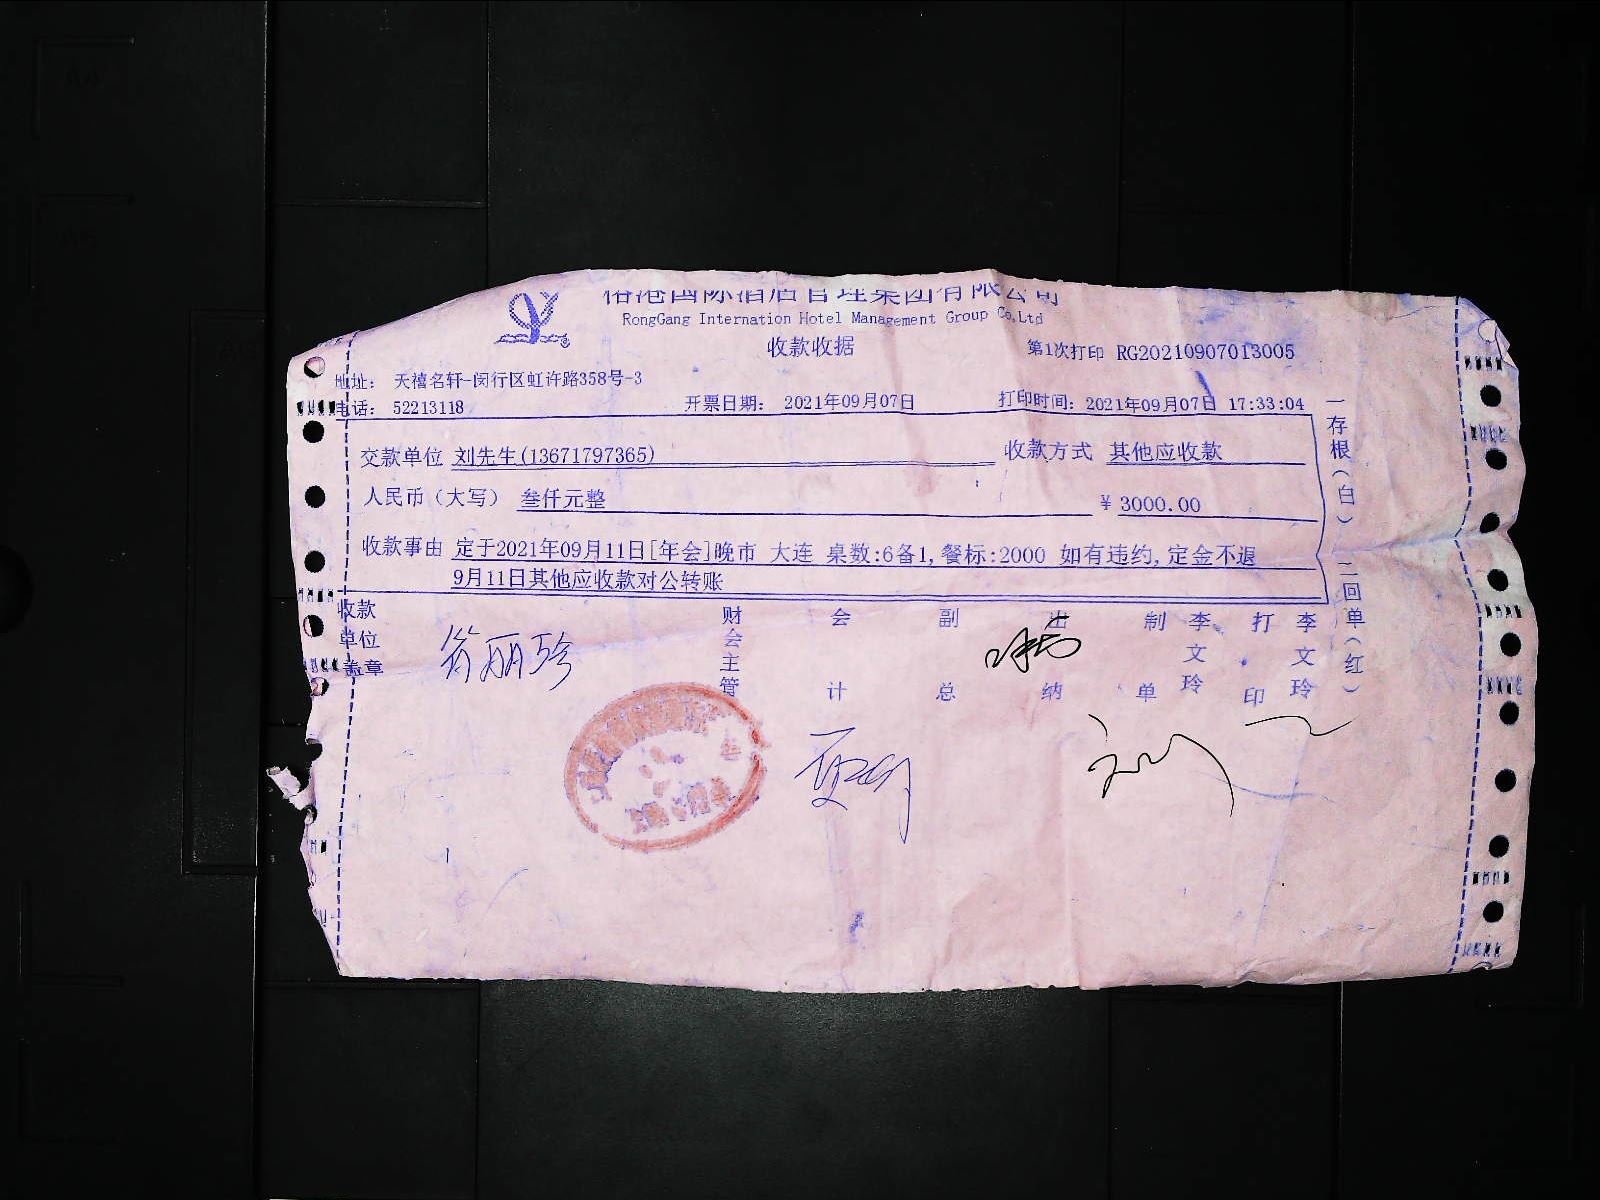 港国际酒店管理集团有限公司
RongGang Internation Hotel Management Group Co,Ltd
收款收据
第1次打印 RG20210907013005
地址： 天禧名轩-闵行区虹许路358号-3
电话： 52213118 开票日期： 2021年09月07日 打印时间：2021年09月07日 17:33:04
交款单位 刘先生(13671797365) 收款方式 其他应收款
人民币（大写） 叁仟元整 ¥ 3000.00
收款事由 定于2021年09月11日[年会]晚市 大连 桌数:6备1,餐标:2000 如有违约,定金不退
9月11日其他应收款对公转账
一存根（白） 二回单（红）
收款单位盖章 翁丽珍 财会主管 会计 副总 出纳 制单 李文玲 打印 李文玲